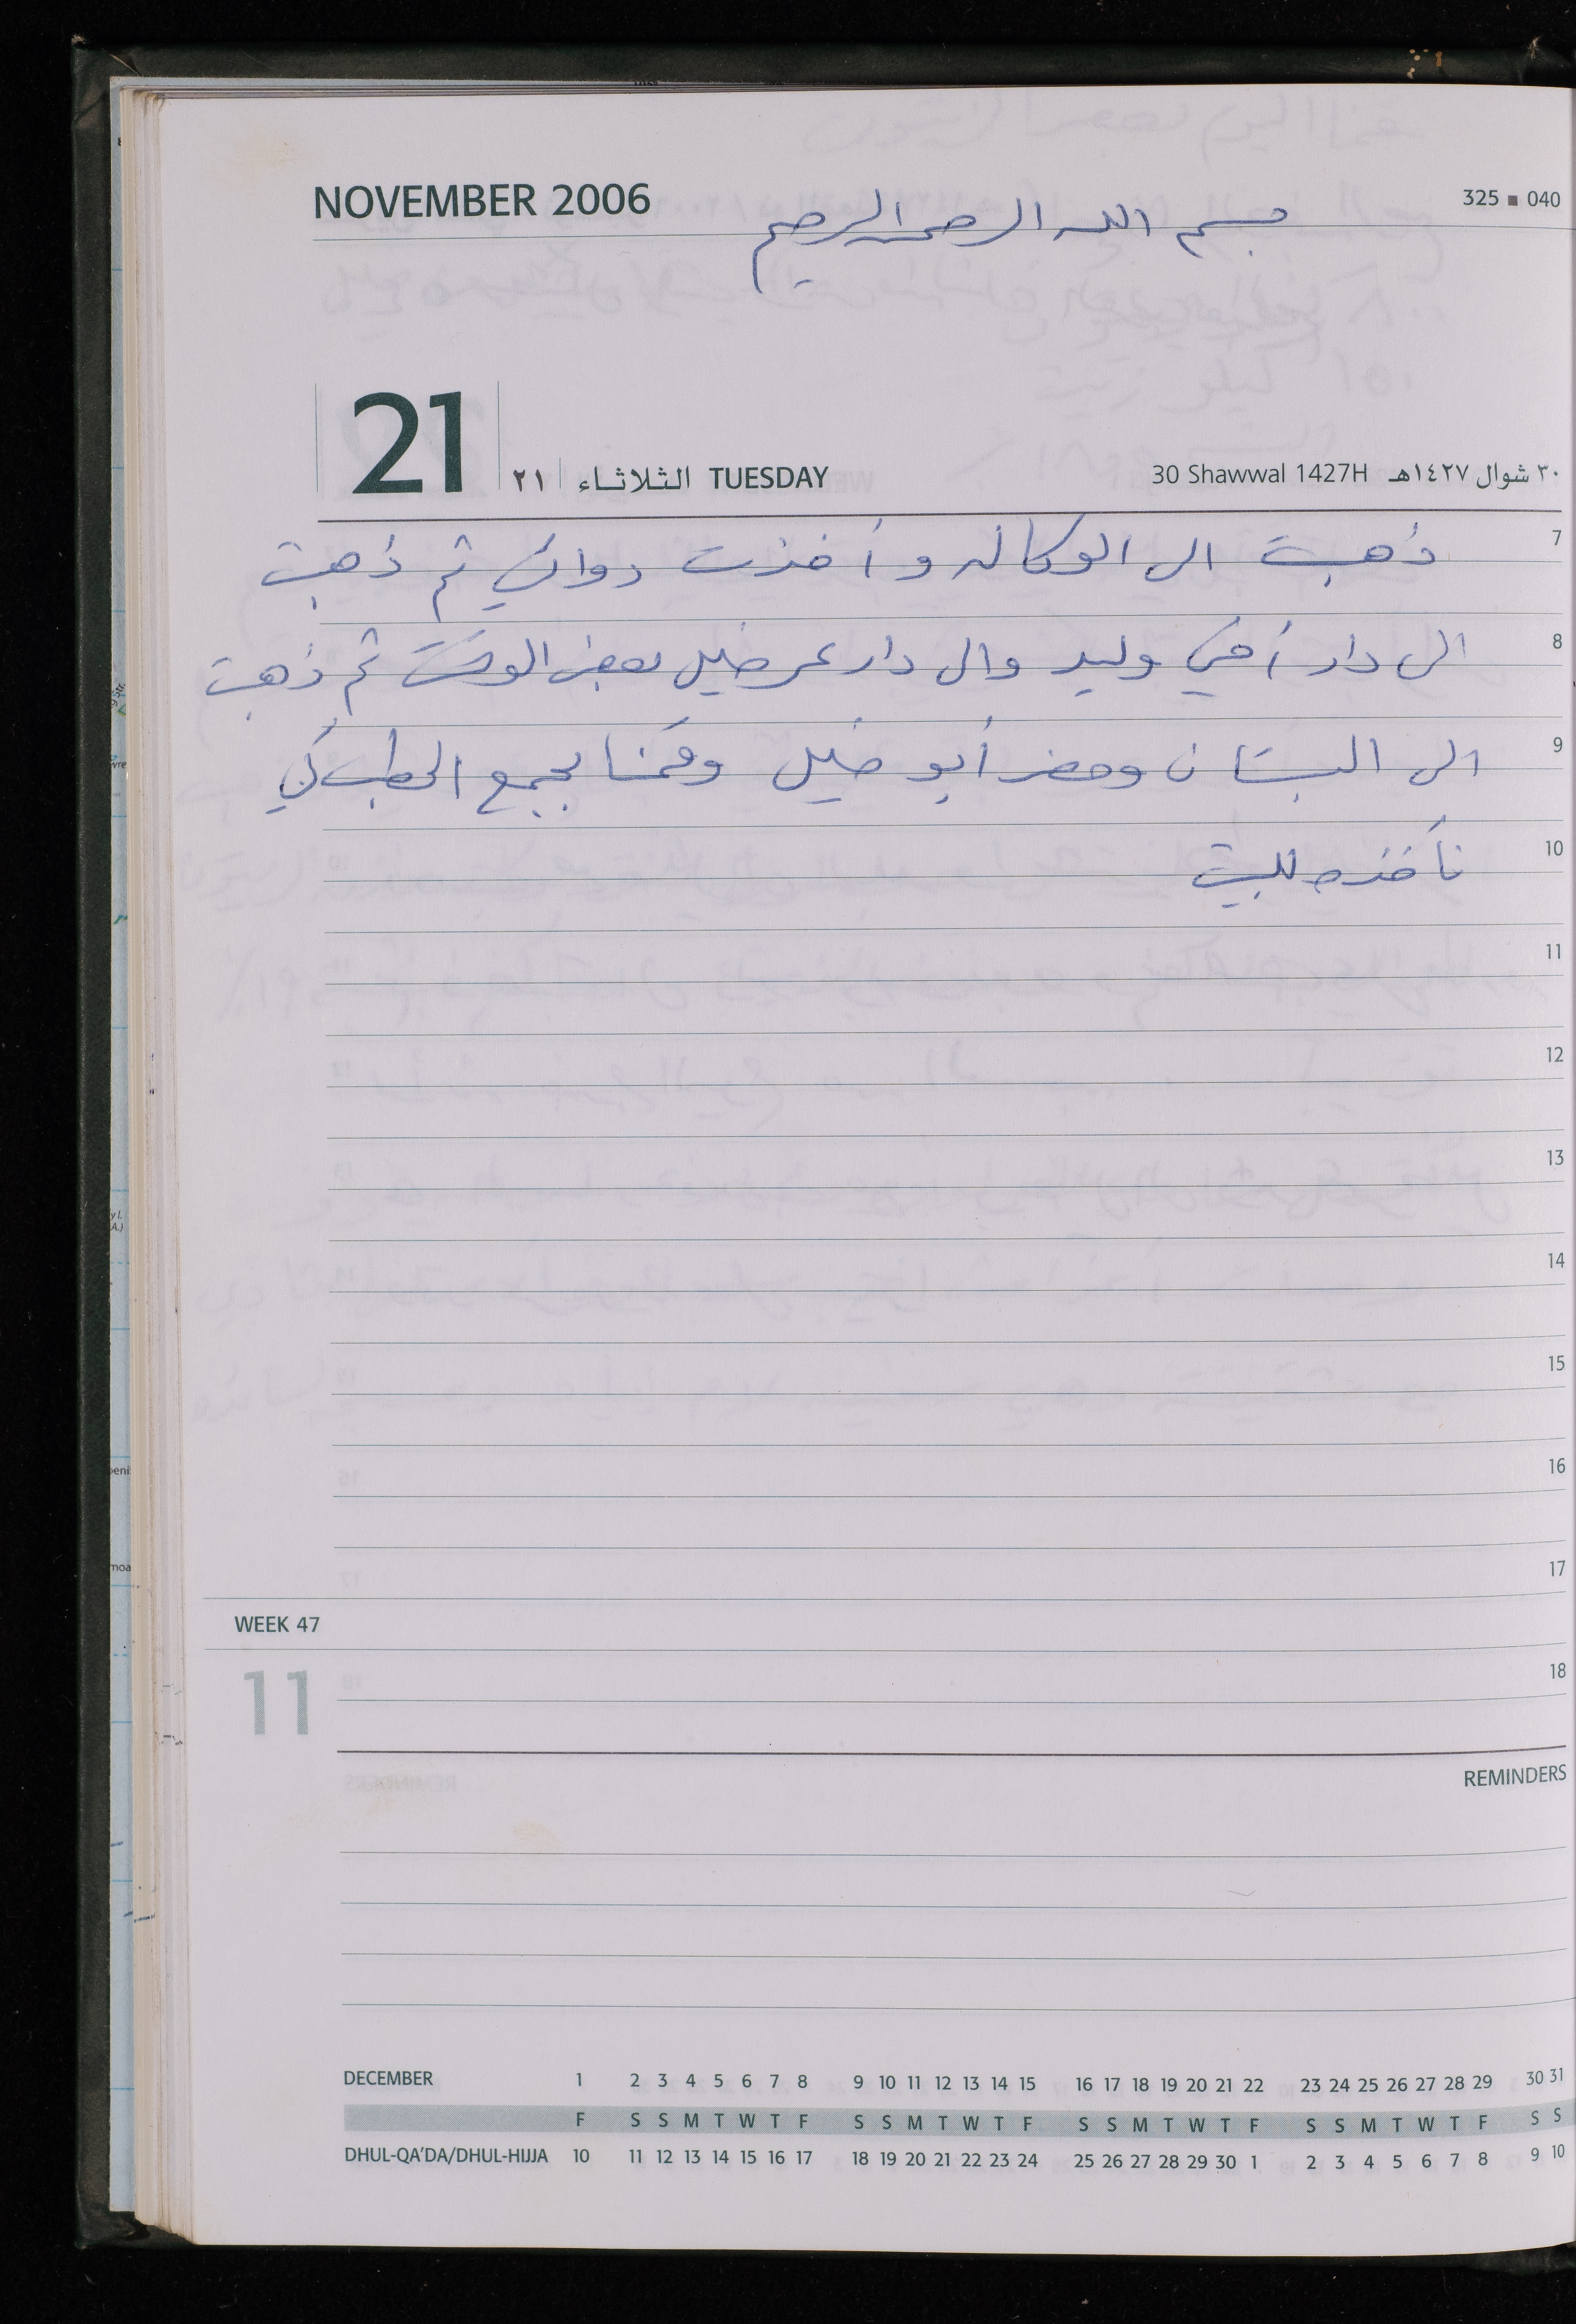 NOVEMBER 2006
325 ■ 040
بسم الله الرحمن الرحيم
21
٢١ الثلاثاء TUESDAY
30 Shawwal 1427H ٣٠ شوال ١٤٢٧هـ
7
ذهبت الى الوكاله وأخذت دوائي ثم ذهبت
8
الى دار أخي وليد والى دار عمر خليل بعض الوقت ثم ذهبت
9
الى البستان وحضر أبو خليل وقمنا بجمع الحطب كي
10
نأخذه للبيت
11
12
13
14
15
16
17
WEEK 47
11
18
REMINDERS
DECEMBER 1 2 3 4 5 6 7 8 9 10 11 12 13 14 15 16 17 18 19 20 21 22 23 24 25 26 27 28 29 30 31
F S S M T W T F S S M T W T F S S M T W T F S S M T W T F S S
DHUL-QA'DA/DHUL-HIJJA 10 11 12 13 14 15 16 17 18 19 20 21 22 23 24 25 26 27 28 29 30 1 2 3 4 5 6 7 8 9 10